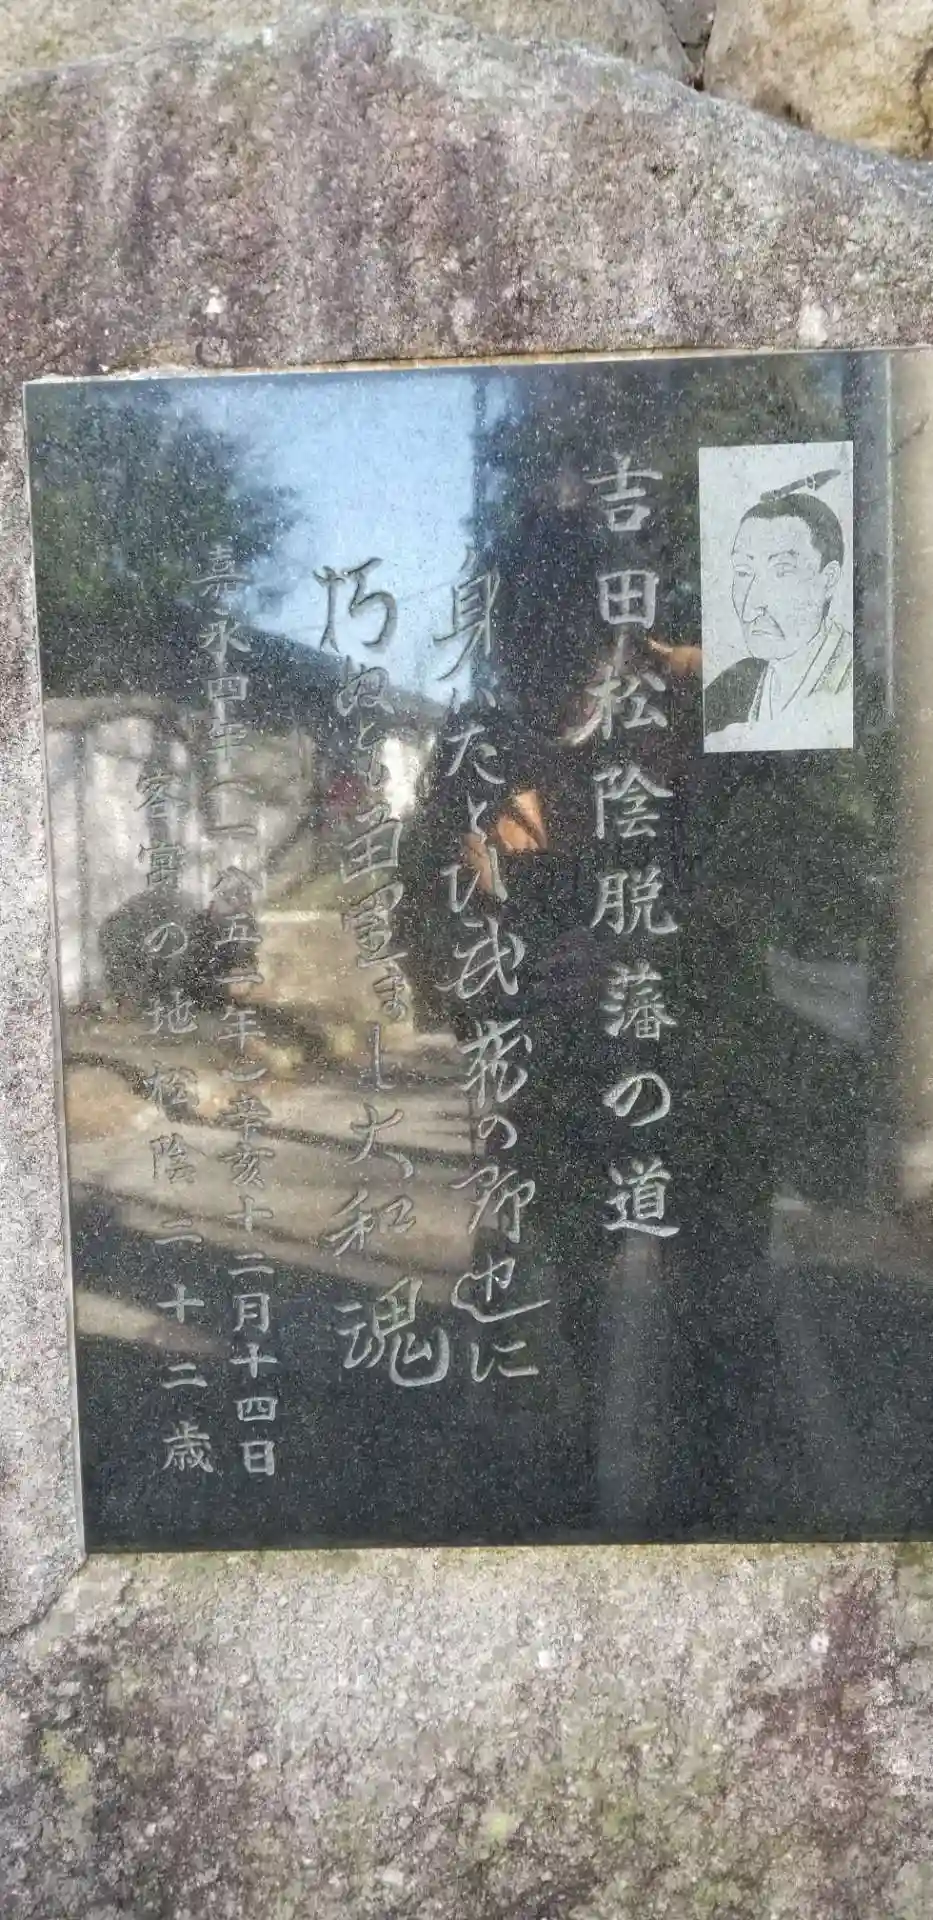 吉田松陰脱藩の道
身ハたとひ武蔵の野辺に
朽ぬとも留置まし大和魂
嘉永四年(一八五一年)辛亥十二月十四日
客寓の地 松陰二十二歳